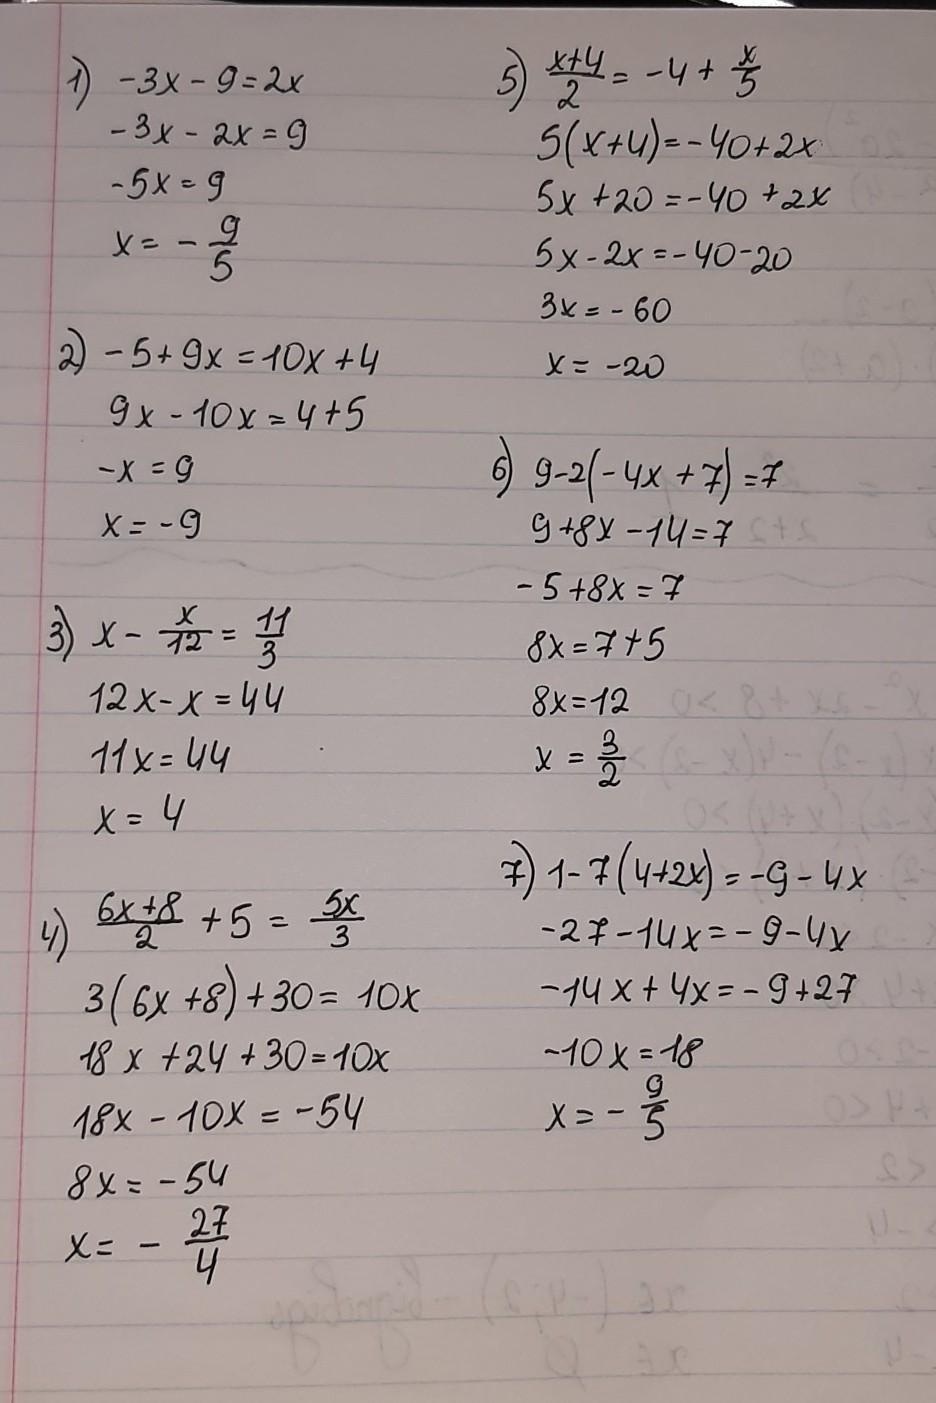 1) -3x - 9 = 2x
-3x - 2x = 9
-5x = 9
x = - 9/5
2) -5 + 9x = 10x + 4
9x - 10x = 4 + 5
-x = 9
x = -9
3) x - x/12 = 11/3
12x - x = 44
11x = 44
x = 4
4) (6x+8)/2 + 5 = 5x/3
3(6x + 8) + 30 = 10x
18x + 24 + 30 = 10x
18x - 10x = -54
8x = -54
x = - 27/4
5) (x+4)/2 = -4 + x/5
5(x+4) = -40 + 2x
5x + 20 = -40 + 2x
5x - 2x = -40 - 20
3x = -60
x = -20
6) 9 - 2(-4x + 7) = 7
9 + 8x - 14 = 7
-5 + 8x = 7
8x = 7 + 5
8x = 12
x = 3/2
7) 1 - 7(4+2x) = -9 - 4x
-27 - 14x = -9 - 4x
-14x + 4x = -9 + 27
-10x = 18
x = - 9/5